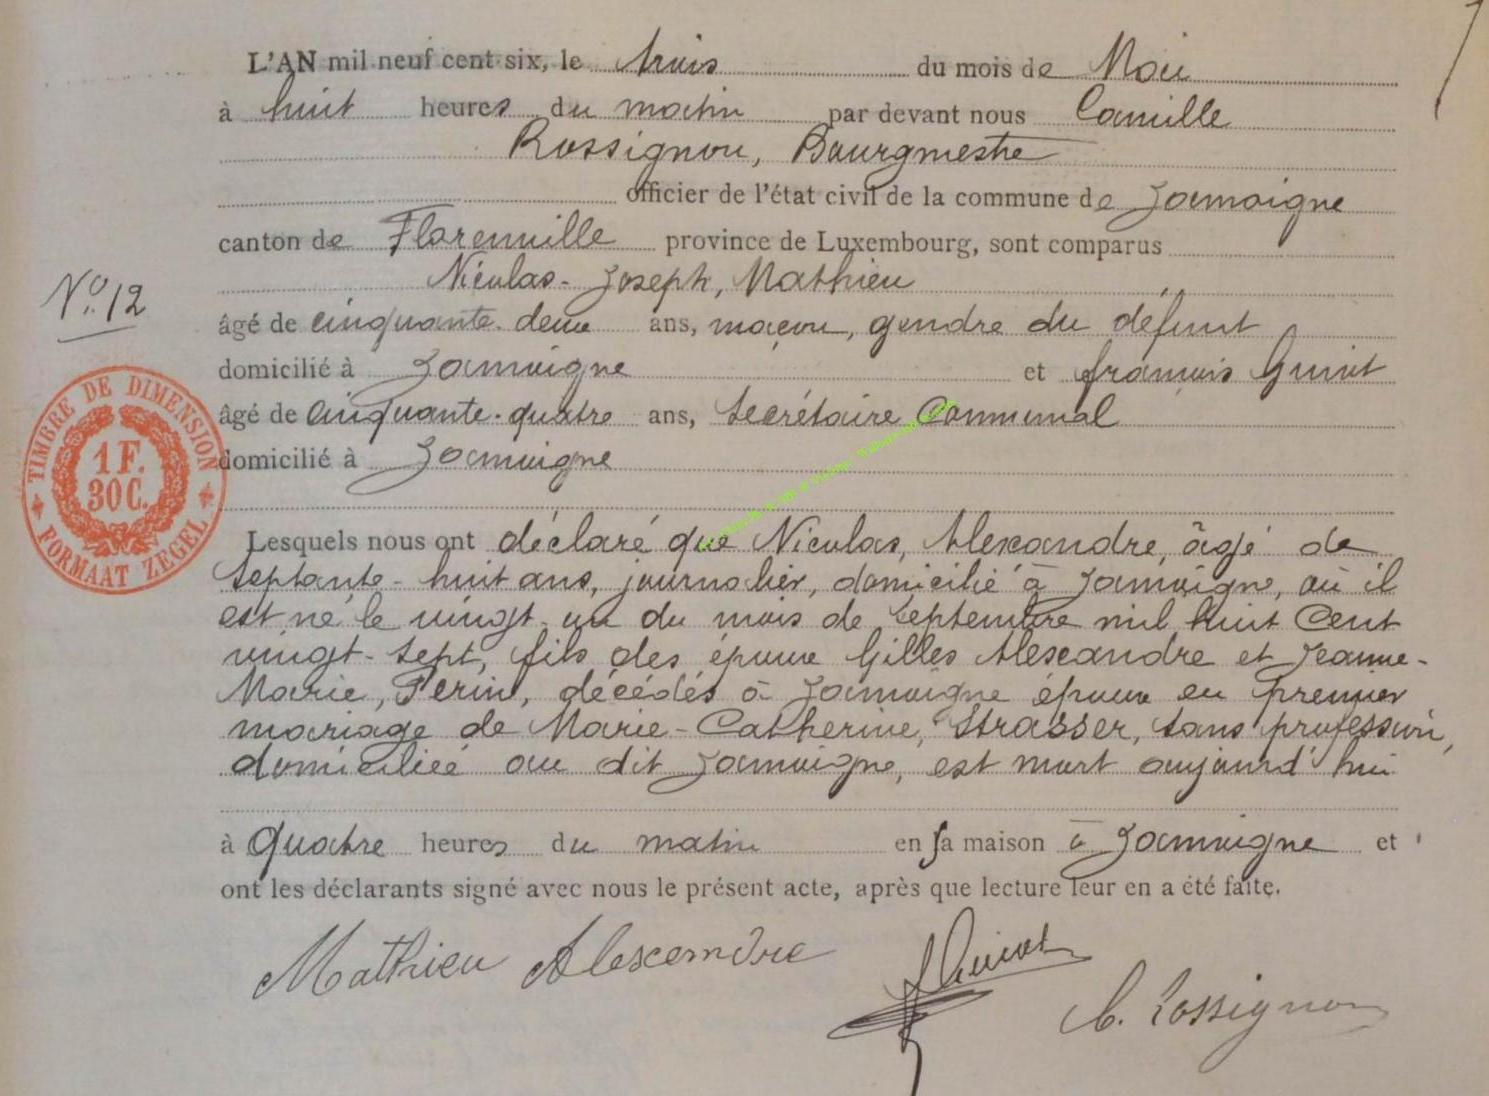 L'AN mil neuf cent six, le trois du mois de Mai
à huit heures du matin par devant nous Camille
Rossignon, Bourgmestre
officier de l'état civil de la commune de Jamoigne
canton de Florenville province de Luxembourg, sont comparus
Nicolas-Joseph, Mathieu
N° 12
âgé de cinquante-deux ans, maçon, gendre du défunt
domicilié à Jamoigne et françois Guiot
âgé de Cinquante-quatre ans, Secrétaire Communal
domicilié à Jamoigne
TIMBRE DE DIMENSION
1 F.
30 C.
FORMAAT ZEGEL
Lesquels nous ont déclaré que Nicolas, Alexandre, âgé de
septante-huit ans, journalier, domicilié à Jamoigne, où il
est né le vingt-un du mois de Septembre mil huit Cent
vingt-sept, fils des époux Gilles Alexandre et Jeanne-
Marie, Perin, décédés à Jamoigne époux en premier
mariage de Marie-Catherine, Strasser, sans profession,
domiciliée au dit Jamoigne, est mort aujourd'hui
à quatre heures du matin en sa maison à Jamoigne et
ont les déclarants signé avec nous le présent acte, après que lecture leur en a été faite.
Mathieu Alexandre
F Guiot
C. Rossignon